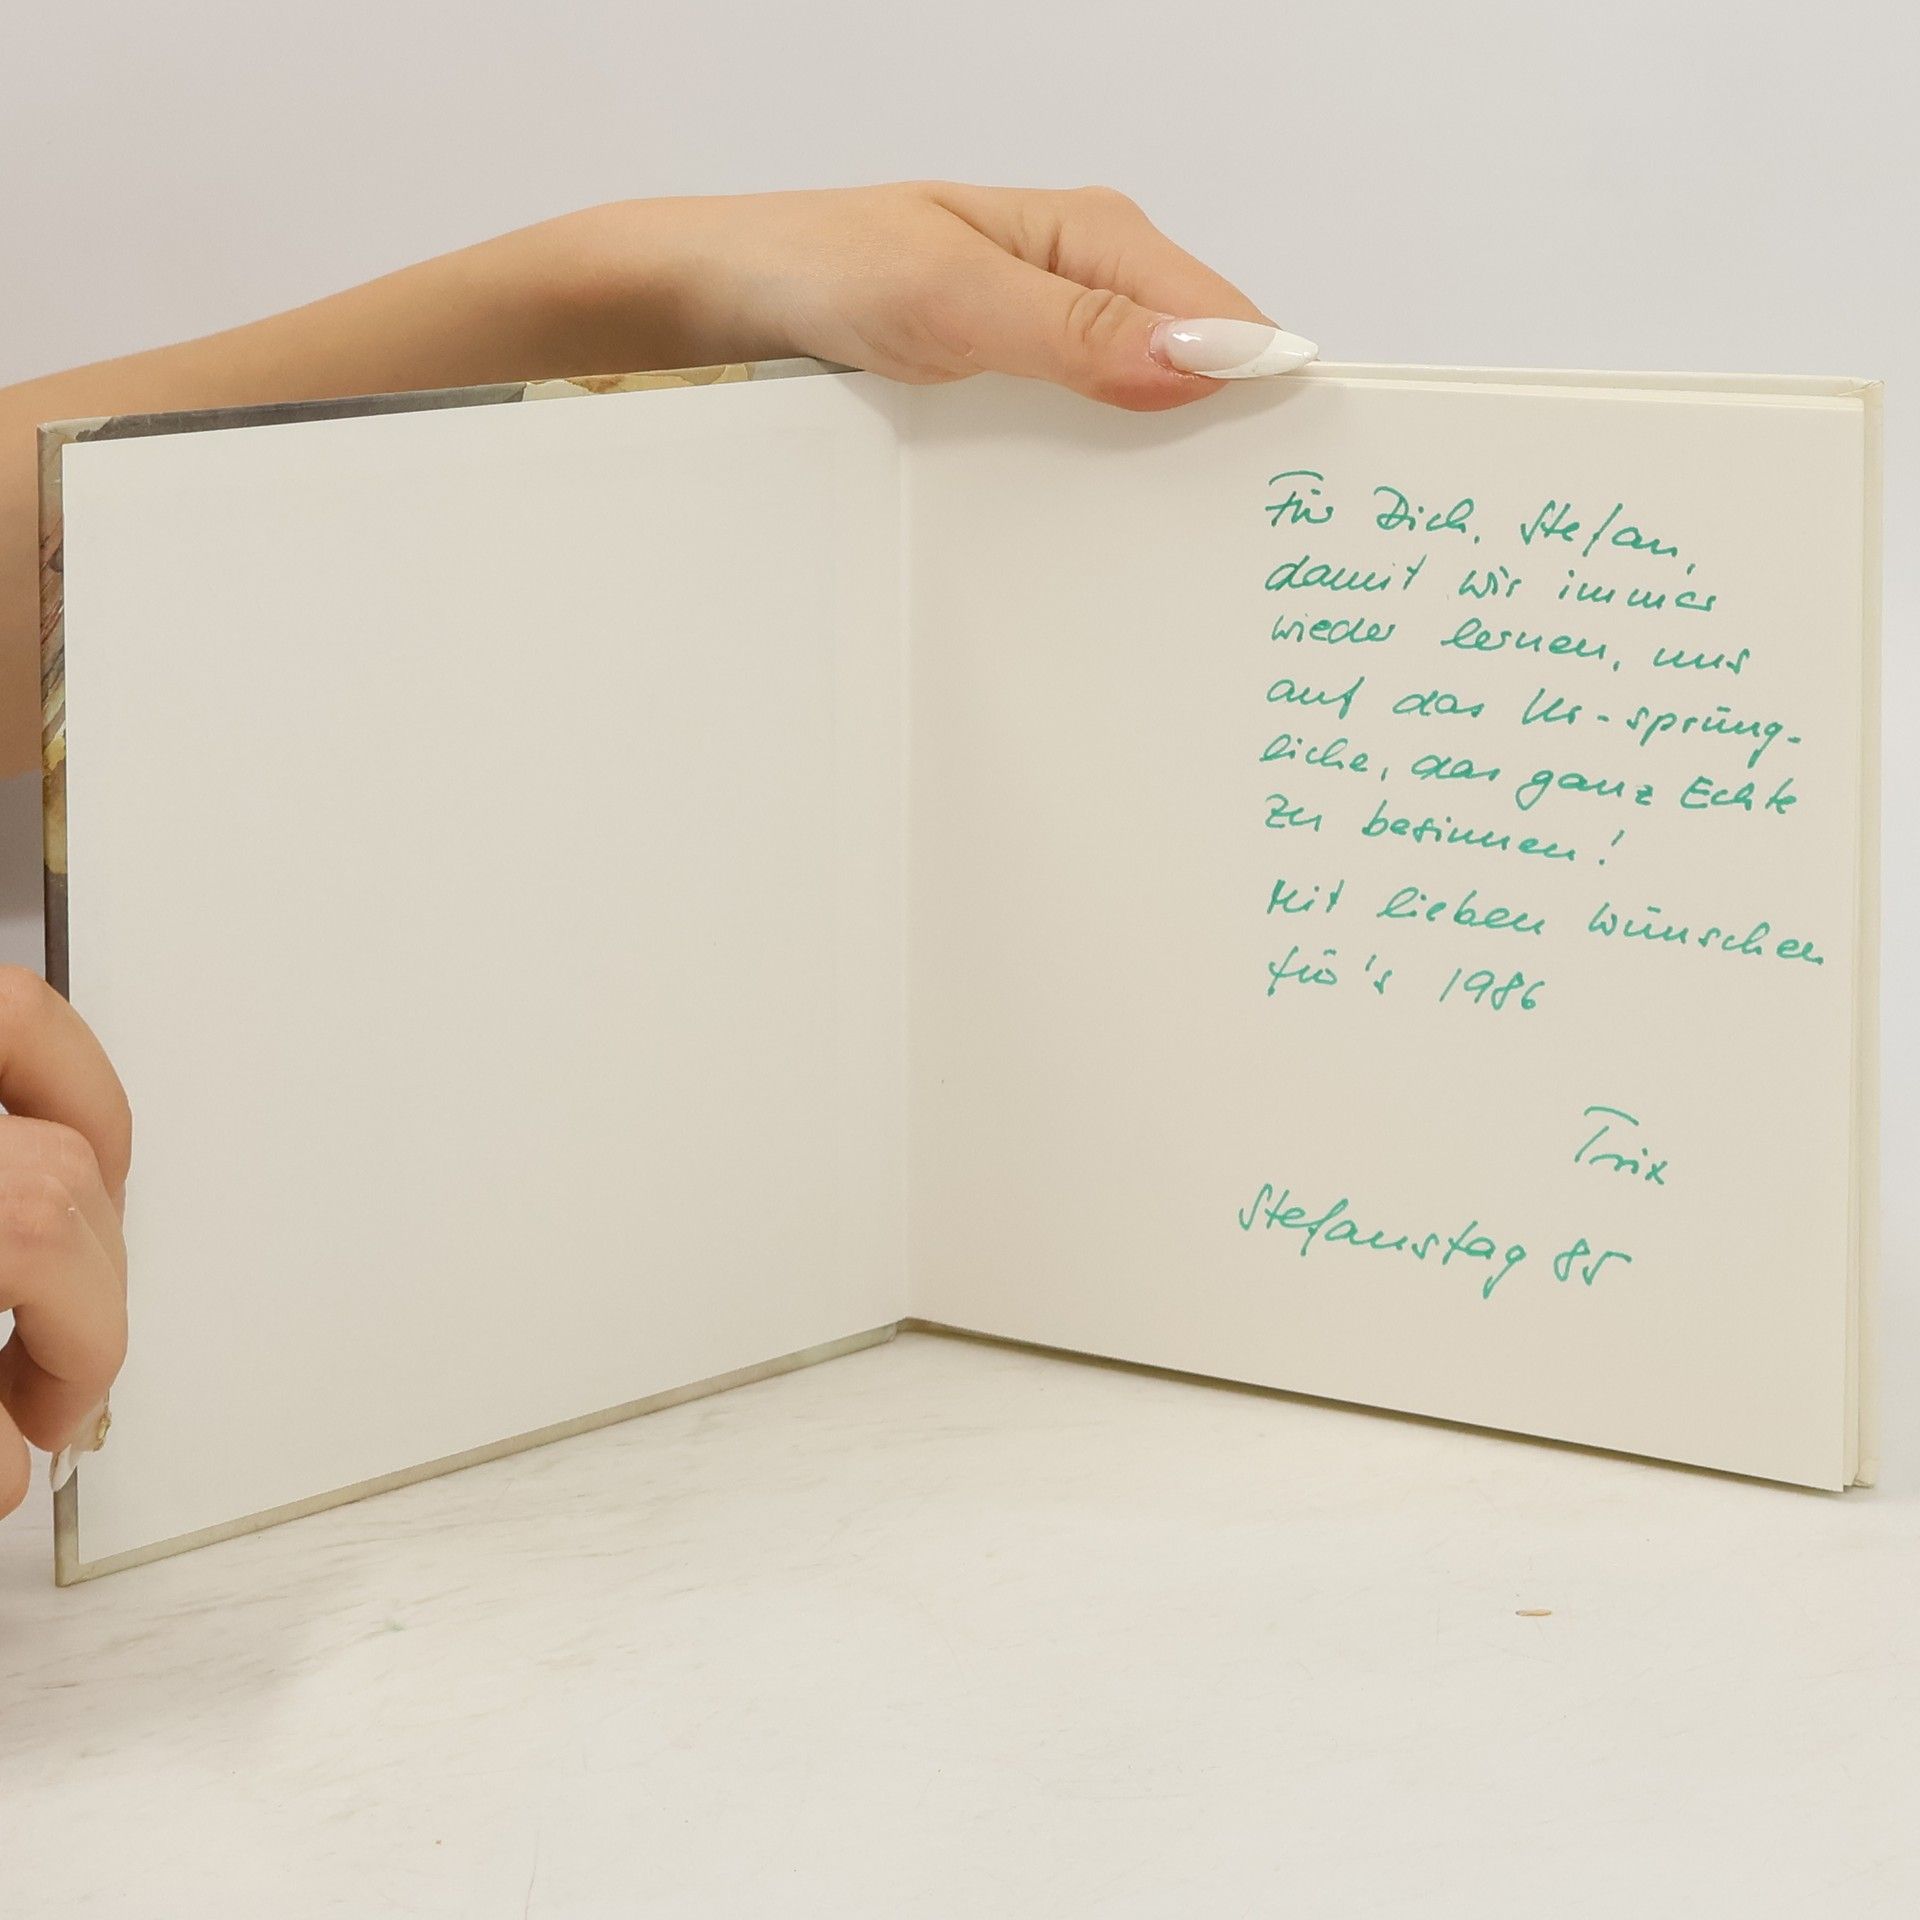 Für Dich, Stefan,
damit wir immer
wieder lernen, uns
auf das Ur-sprüng-
liche, das ganz Echte
zu besinnen!
Mit lieben Wünschen
für's 1986
Trix
Stefanstag 85